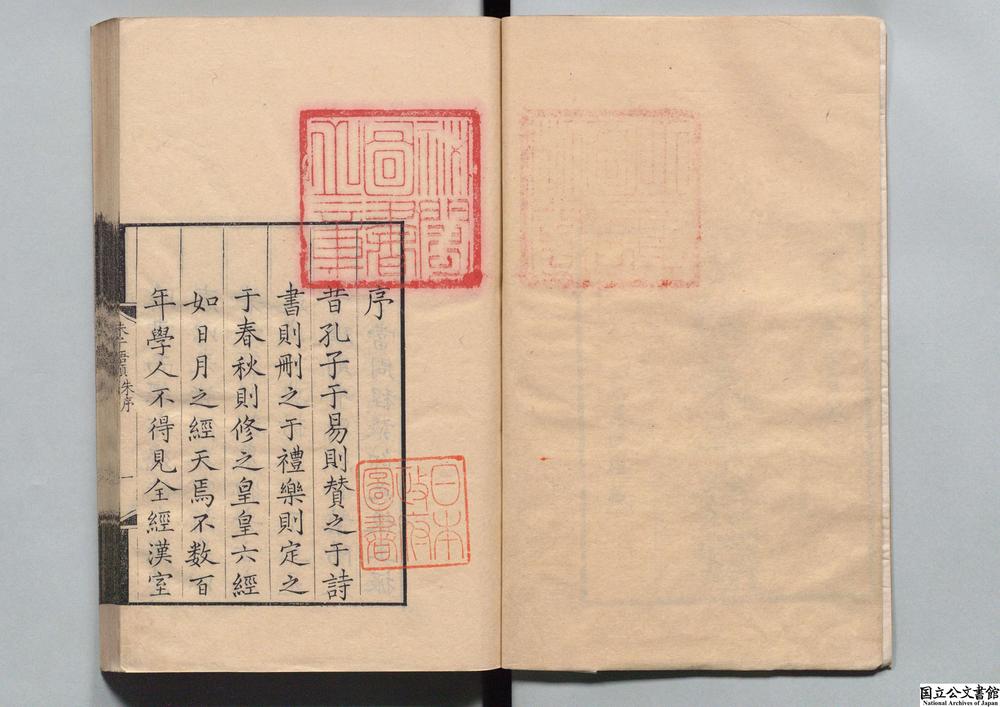 序
昔孔子于易則賛之于詩
書則刪之于禮樂則定之
于春秋則修之皇皇六經
如日月之經天焉不数百
年學人不得見全經漢室
朱子語類朱序
一
秘閣圖書之章
日本政府圖書
国立公文書館
National Archives of Japan